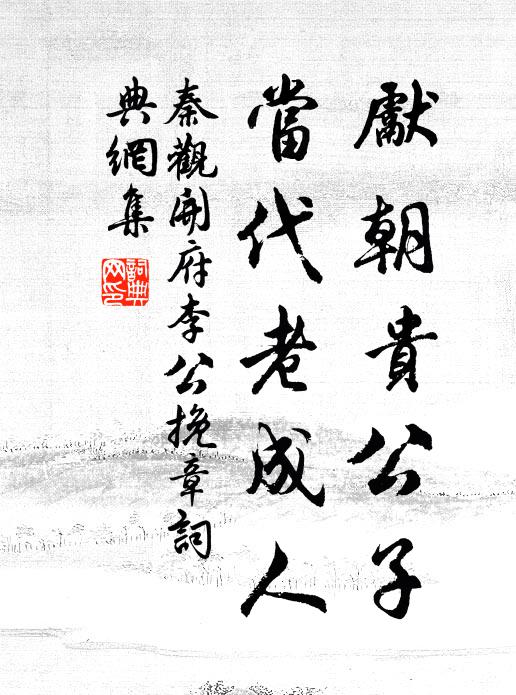 獻朝貴公子
當代老成人
秦觀開府李公挽章詞
典網集
詞典网印